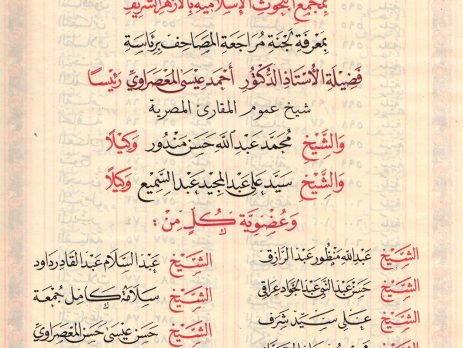 بمجمع البحوث الإسلامية بالأزهر الشريف
بمعرفة لجنة مراجعة المصاحف برئاسة
فضيلة الأستاذ الدكتور أحمد عيسى المعصراوي رئيسًا
شيخ عموم المقارئ المصرية
والشيخ محمد عبد الله حسن مندور وكيلًا
والشيخ سيد علي عبد المجيد عبد السميع وكيلًا
وعضوية كل من :
الشيخ عبد الله منظور عبد الرازق الشيخ عبد السلام عبد القادر داود
الشيخ حسن عبد النبي عبد الجواد عراقي الشيخ سلامة كامل جمعة
الشيخ علي سيد شرف الشيخ حسن عيسى حسن المعصراوي